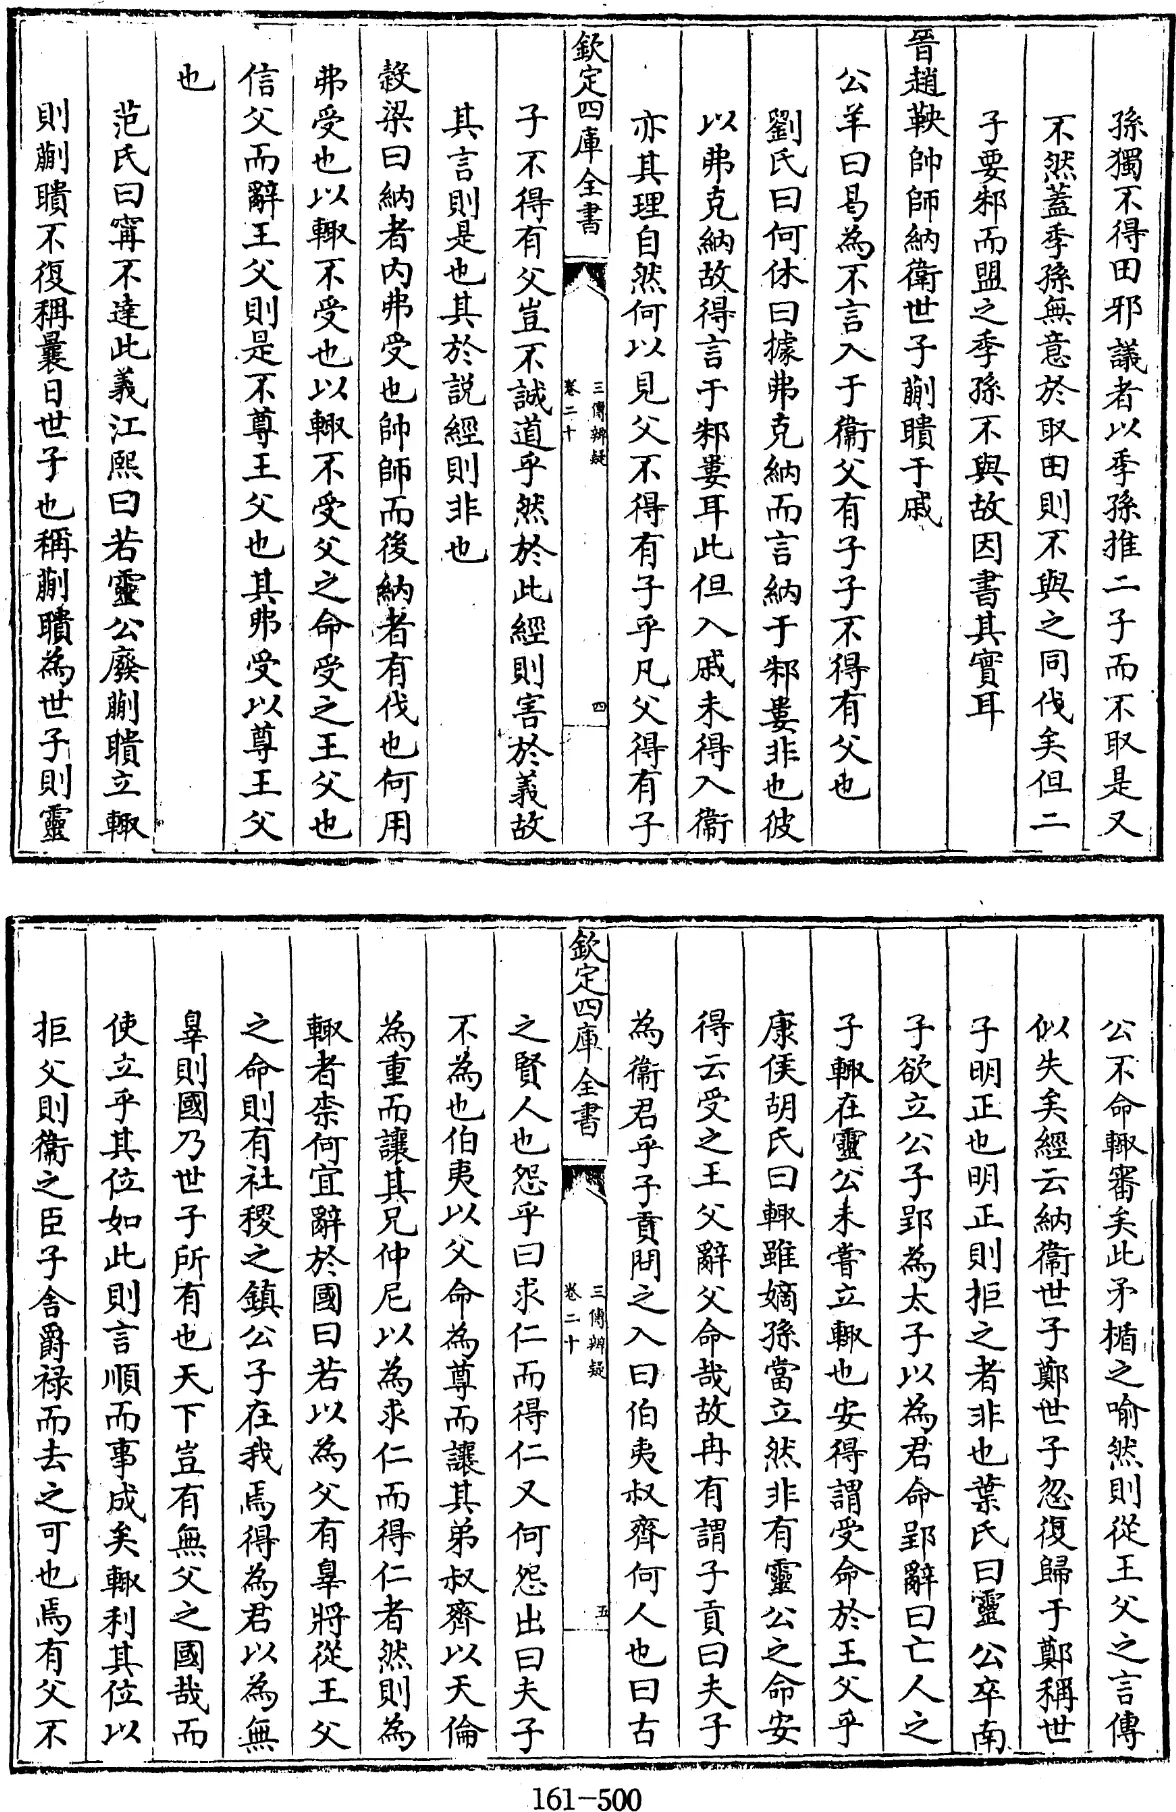 孫獨不得田邪議者以季孫推二子而不取是又
不然蓋季孫無意於取田則不與之同伐矣但二
子要邾而盟之季孫不與故因書其實耳
晉趙鞅帥師納衛世子蒯聵于戚
公羊曰曷為不言入于衛父有子子不得有父也
劉氏曰何休曰據弗克納而言納于邾婁非也彼
以弗克納故得言于邾婁耳此但入戚未得入衛
亦其理自然何以見父不得有子乎凡父得有子
欽定四庫全書
三傳辨疑
卷二十
四
子不得有父豈不誠道乎然於此經則害於義故
其言則是也其於説經則非也
穀梁曰納者内弗受也帥師而後納者有伐也何用
弗受也以輙不受也以輙不受父之命受之王父也
信父而辭王父則是不尊王父也其弗受以尊王父
也
范氏曰甯不達此義江熙曰若靈公廢蒯聵立輙
則蒯聵不復稱曩日世子也稱蒯聵為世子則靈
公不命輙審矣此矛楯之喻然則從王父之言傳
似失矣經云納衛世子鄭世子忽復歸于鄭稱世
子明正也明正則拒之者非也葉氏曰靈公卒南
子欲立公子郢為太子以為君命郢辭曰亡人之
子輙在靈公未嘗立輙也安得謂受命於王父乎
康侯胡氏曰輙雖嫡孫當立然非有靈公之命安
得云受之王父辭父命哉故冉有謂子貢曰夫子
為衛君乎子貢問之入曰伯夷叔齊何人也曰古
欽定四庫全書
三傳辨疑
卷二十
五
之賢人也怨乎曰求仁而得仁又何怨出曰夫子
不為也伯夷以父命為尊而讓其弟叔齊以天倫
為重而讓其兄仲尼以為求仁而得仁者然則為
輙者柰何宜辭於國曰若以為父有辠將從王父
之命則有社稷之鎮公子在我焉得為君以為無
辠則國乃世子所有也天下豈有無父之國哉而
使立乎其位如此則言順而事成矣輙利其位以
拒父則衛之臣子舍爵祿而去之可也焉有父不
161-500